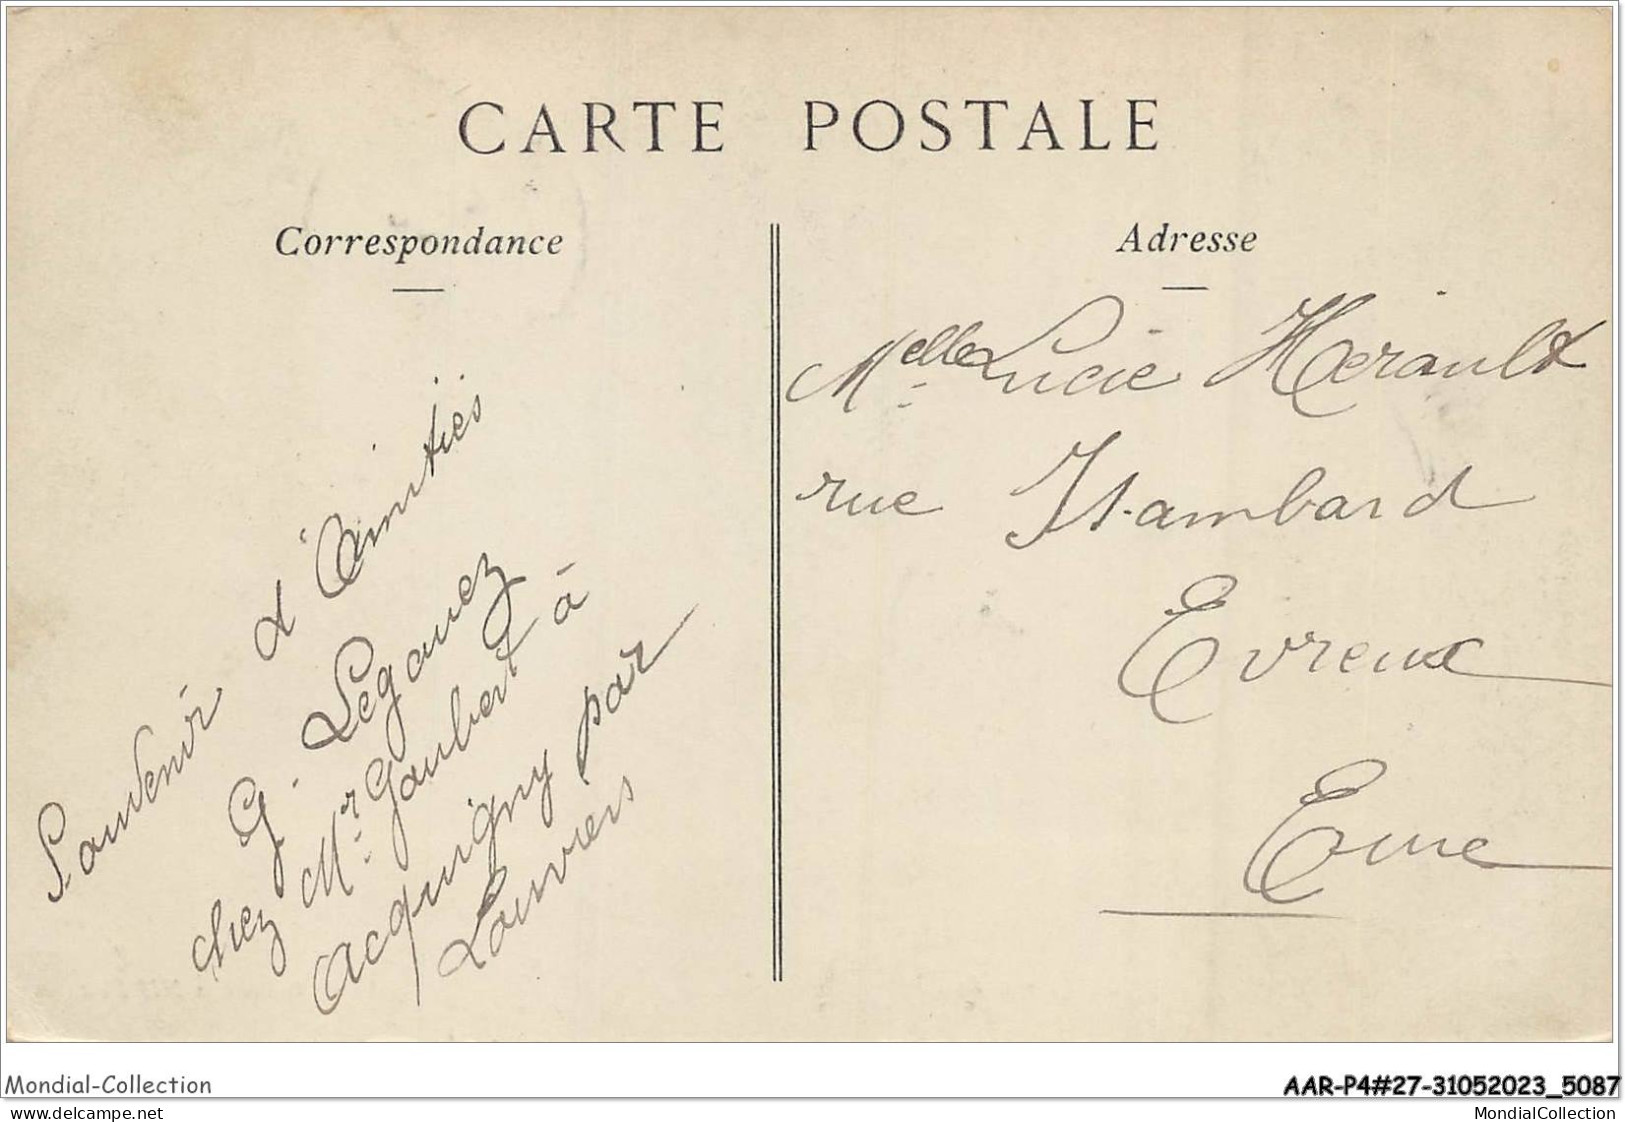 CARTE POSTALE
Correspondance
Souvenir d'Amitiés
G. Léganez
chez Mr. Gaubert à
Acquigny par
Louviers
Adresse
Melle Lucie Hérault
rue Isambard
Evreux
Eure
Mondial-Collection
AAR-P4#27-31052023_5087
www.delcampe.net
MondialCollection